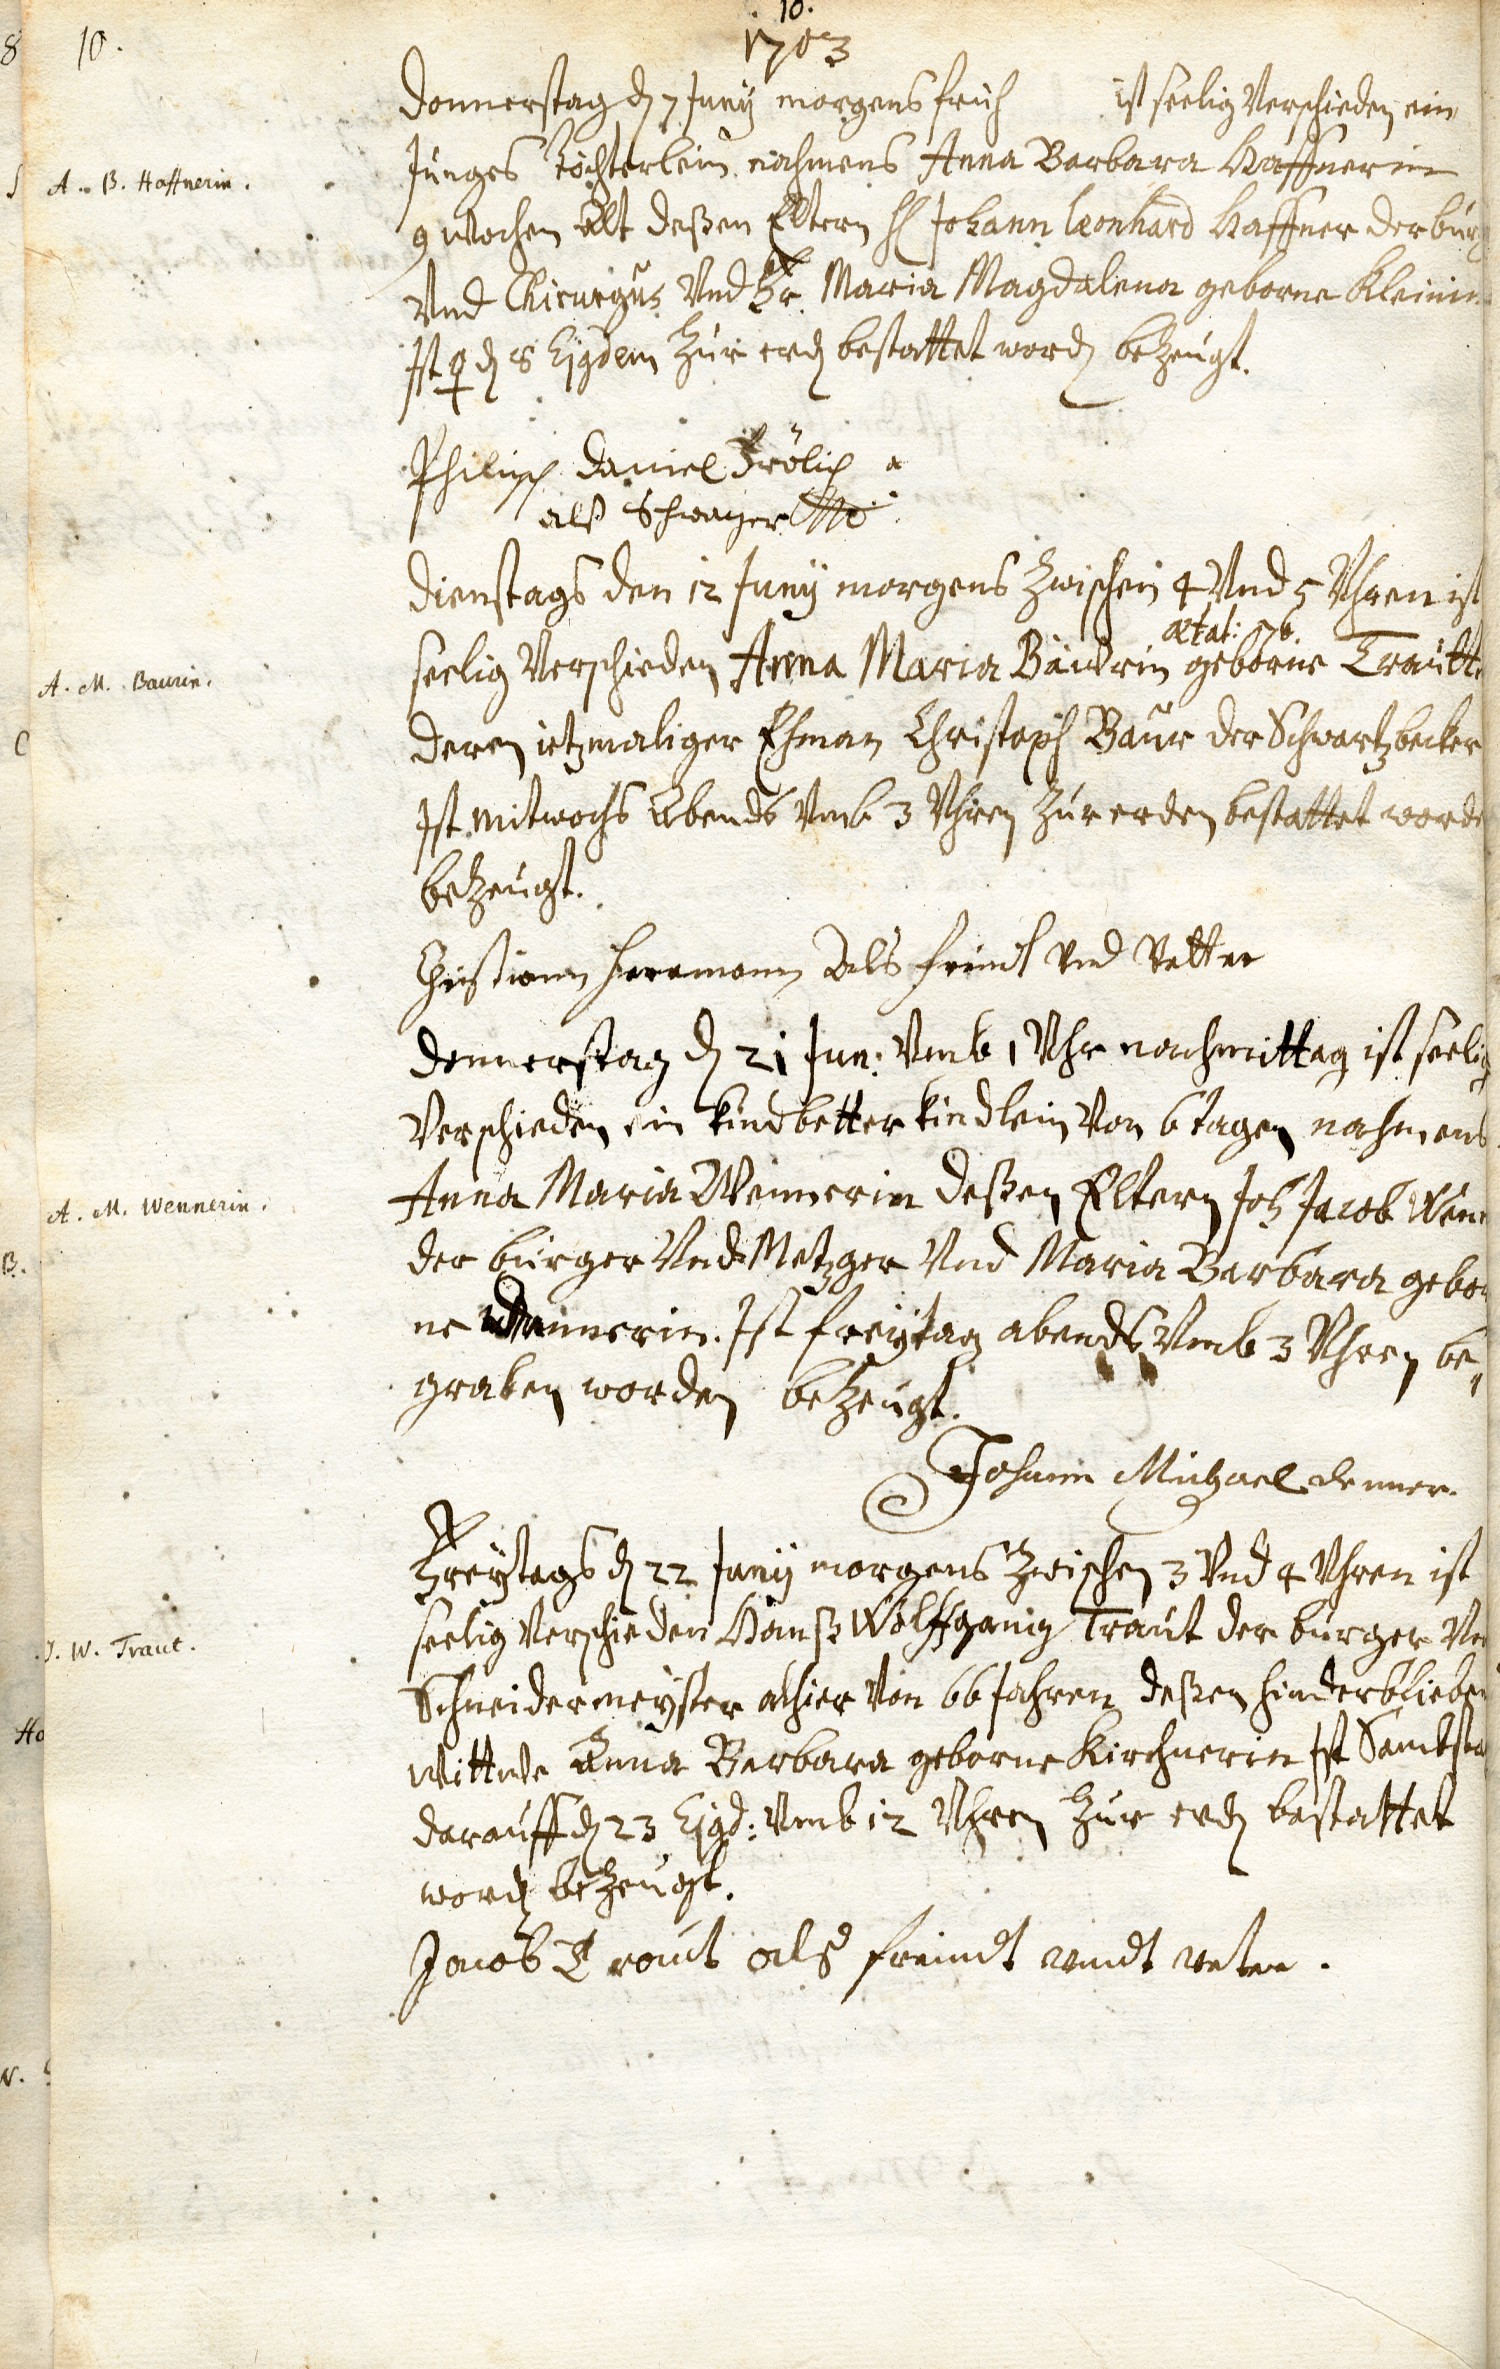 10.
10.
1703
Donnerstag dẽ 7 Juny morgens früh ist seelig Verschieden ein
A. B. Haffnerin.
Junges Töchterlein nahmens Anna Barbara Haffnerin
9 Wochen alt deßen Eltern H Johann Leonhard Haffner der burg
Vnd Chirurgus Vnd Fr. Maria Magdalena geborne Kleinin
Ist ♀ dẽ 8 Ejgdem Zur erdẽ bestattet wordẽ beZeugt.
Philips Daniel Frölich
alß Schwager
Dienstags den 12 Juny morgens Zwischen 4 Vnd 5 Vhren ist
ætat: 76.
A. M. Baurin.
seelig Verschieden Anna Maria Baürin geborne Trautt
deren ietzmaliger Ehman Christoph Baur der Schwartzbecker
Ist mitwochs Abends Vmb 3 Vhren Zur erden bestattet worde
beZeugt.
Christian Herrmann Als freindt Vnd Vetter
Donnerstag dẽ 21 Jun: Vmb 1 Vhr nachmittag ist seelig
Verschieden ein Kindbetter Kindlein Von 6 tagen nahmens
A. M. Wennerin.
Anna Maria Wennerin deßen Eltern Joh Jacob Wenn
der burger Vnd Metzger Vnd Maria Barbara gebor
ne Dennerin. Ist freytag abends Vmb 3 Vhren be„
graben worden beZeugt.
Johann Michael Denner.
Freytags dẽ 22 Juny morgens Zwischen 3 Vnd 4 Vhren ist
J. W. Traut.
seelig Verschieden Hanß Wolffgang Traut der burger Vn
Schneidermeyster alhier Von 66 Jahren deßen hinderblieben
Wittwe Anna Barbara geborne Kirchnerin Ist Sambsta
darauff dẽ 23 Ejgd: Vmb 12 Vhren Zur erdẽ bestattet
wordẽ beZeugt.
Jacob Traut alß freindt vndt veter.